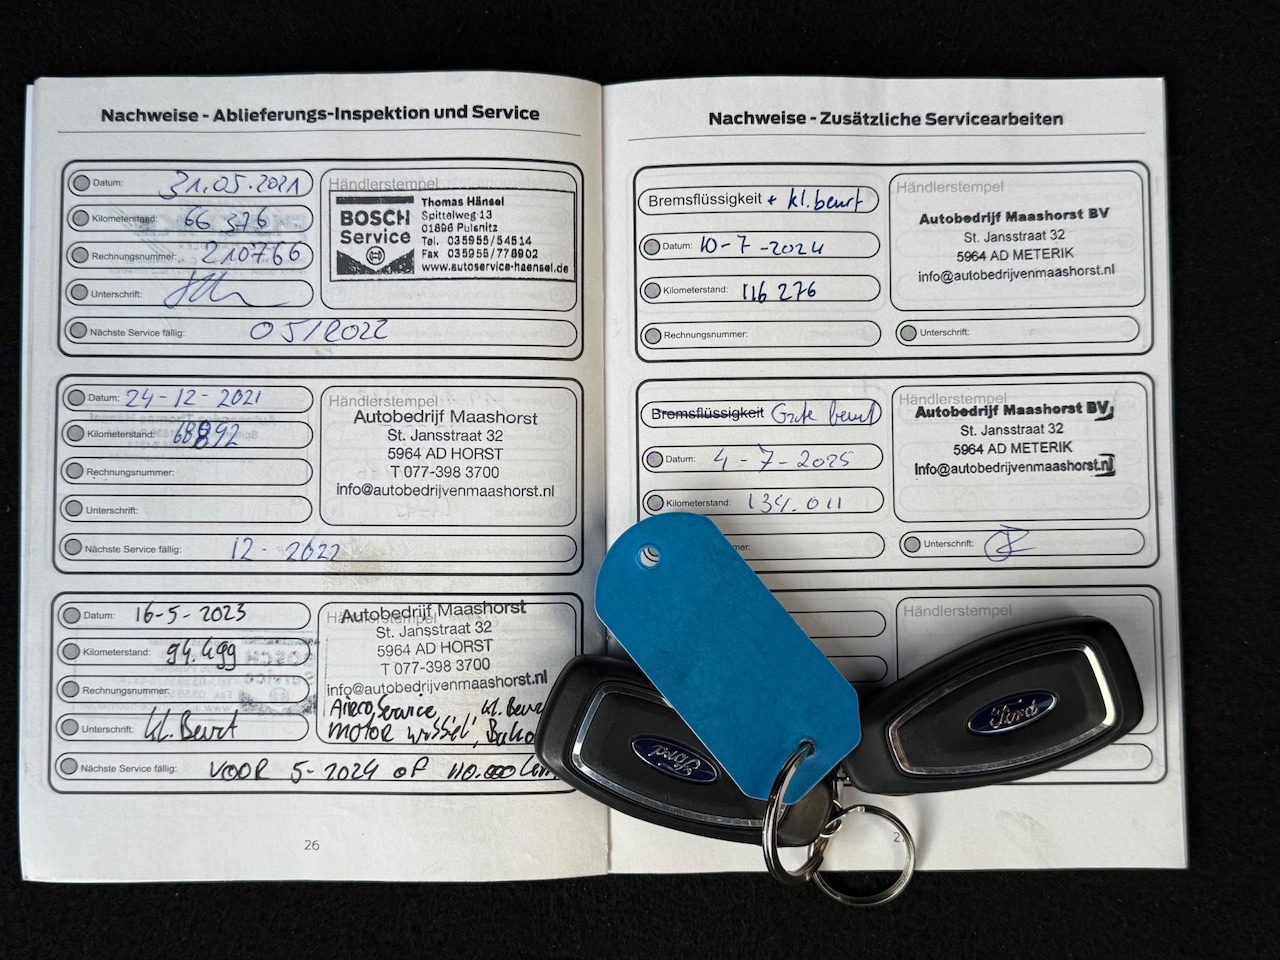 Nachweise - Ablieferungs-Inspektion und Service
Datum: 31.05.2021
Kilometerstand: 66 376
Rechnungsnummer: 210766
Unterschrift:
Nächste Service fällig: 05/2022
Händlerstempel
BOSCH
Service
Thomas Hänsel
Spittelweg 13
01896 Pulsnitz
Tel. 035955/54514
Fax 035955/778902
www.autoservice-haensel.de
Datum: 24-12-2021
Kilometerstand: 68892
Rechnungsnummer:
Unterschrift:
Nächste Service fällig: 12-2022
Händlerstempel
Autobedrijf Maashorst
St. Jansstraat 32
5964 AD HORST
T 077-398 3700
info@autobedrijvenmaashorst.nl
Datum: 16-5-2023
Kilometerstand: 94.499
Rechnungsnummer:
Unterschrift: kl. Beurt
Nächste Service fällig: VOOR 5-2024 of 110.000
Händlerstempel
Autobedrijf Maashorst
St. Jansstraat 32
5964 AD HORST
T 077-398 3700
info@autobedrijvenmaashorst.nl
Airco Service
MOTOR
26
Nachweise - Zusätzliche Servicearbeiten
Bremsflüssigkeit + kl. beurt
Datum: 10-7-2024
Kilometerstand: 116 276
Rechnungsnummer:
Händlerstempel
Autobedrijf Maashorst BV
St. Jansstraat 32
5964 AD METERIK
info@autobedrijvenmaashorst.nl
Unterschrift:
Bremsflüssigkeit Grote beurt
Datum: 4-7-2025
Kilometerstand: 134.011
Händlerstempel
Autobedrijf Maashorst BV
St. Jansstraat 32
5964 AD METERIK
Info@autobedrijvenmaashorst.nl
Unterschrift:
Händlerstempel
Ford
Ford